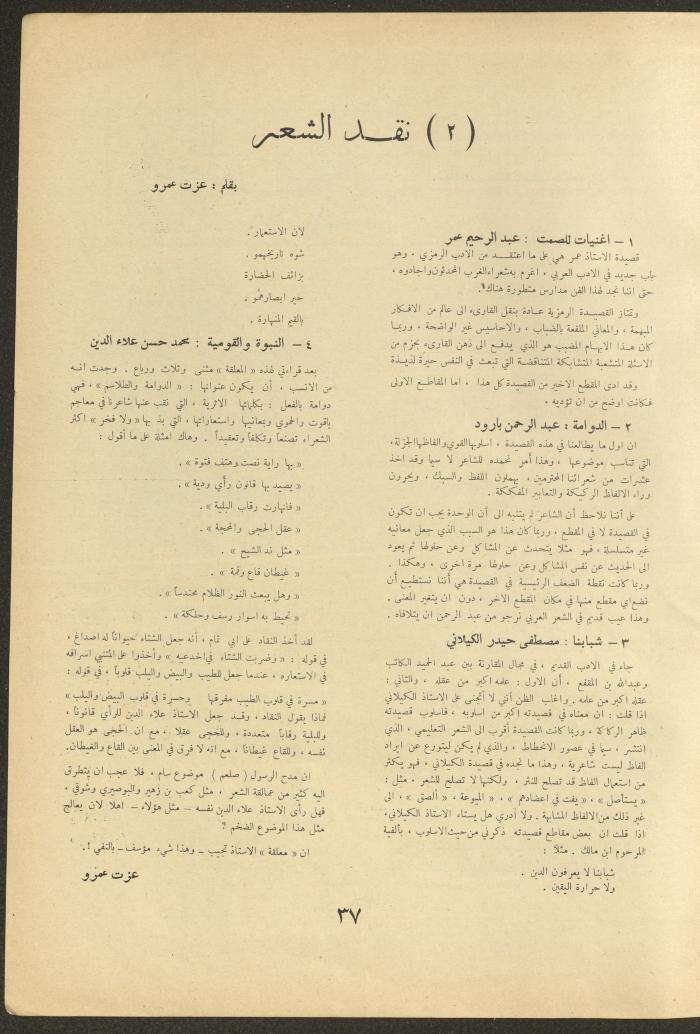 ( ٢ ) نقد الشعر
بقلم : عزت عمرو
١ – اغنيات للصمت : عبد الرحيم عمر
قصيدة الاستاذ عمر هي على ما اعتقد من الادب الرمزي ، وهو
باب جديد في الادب العربي ، اغرم به شعراء الغرب المحدثون واجادوه ،
حتى اننا نجد لهذا الفن مدارس متطورة هناك .
وتمتاز القصيدة الرمزية عادة بنقل القارىء الى عالم من الافكار
المبهمة ، والمعاني الملفعة بالضباب ، والاحاسيس غير الواضحة ، وربما
كان هذا الابهام المضبب هو الذي يدفع الى ذهن القارىء بحزم من
الاسئلة المتشعبة المتشابكة المتناقضة التي تبعث في النفس حيرة لذيذة
وقد ادى المقطع الاخير من القصيدة كل هذا ، اما المقاطع الاولى
فكانت اوضح من ان تؤديه .
٢ – الدوامة : عبد الرحمن بارود
ان اول ما يطالعنا في هذه القصيدة ، اسلوبها القوي والفاظها الجزلة ،
التي تناسب موضوعها ، وهذا أمر نحمده للشاعر لا سيما وقد اخذ
عشرات من شعرائنا المحترمين ، يهملون اللفظ والسبك ، ويجرون
وراء الالفاظ الركيكة والتعابير المفككة .
على أننا نلاحظ أن الشاعر لم يتنبه الى أن الوحدة يجب ان تكون
في القصيدة لا في المقطع ، وربما كان هذا هو السبب الذي جعل معانيه
غير متسلسلة ، فهو مثلا يتحدث عن المشاكل وعن حلولها ثم يعود
الى الحديث عن نفس المشاكل وعن حلولها مرة اخرى ، وهكذا .
وربما كانت نقطة الضعف الرئيسية في القصيدة هي أننا نستطيع أن
نضع اي مقطع منها في مكان المقطع الاخر ، دون ان يتغير المعنى .
وهذا عيب قديم في الشعر العربي نرجو من عبد الرحمن ان يتلافاه .
٣ – شبابنا : مصطفى حيدر الكيلاني
جاء في الادب القديم ، في مجال المقارنة بين عبد الحميد الكاتب
وعبدالله بن المقفع ، أن الاول : علمه اكبر من عقله ، والثاني :
عقله اكبر من علمه . واغلب الظن أنني لا أتجنى على الاستاذ الكيلاني
اذا قلت : ان معناه في قصيدته اكبر من اسلوبه ، فاسلوب قصيدته
ظاهر الركاكة ، وربما كانت القصيدة أقرب الى الشعر التعليمي ، الذي
انتشر ، سيما في عصور الانحطاط ، والذي لم يكن ليتورع عن ايراد
الفاظ ليست شاعرية ، وهذا ما نجده في قصيدة الكيلاني ، فهو يكثر
من استعمال الفاظ قد تصلح للنثر ، ولكنها لا تصلح للشعر ، مثل :
« يستأصل » ، « يفت في اعضادهم » ، « الميوعة ، « ألصق » ، الى
غير ذلك من الالفاظ المشابهة . ولا أدري هل يستاء الاستاذ الكيلاني ،
اذا قلت ان بعض مقاطع قصيدته ذكرني من حيث الاسلوب ، بألفية
المرحوم ابن مالك . مثلا :
شبابنا لا يعرفون الدين .
ولا حرارة اليقين .
لان الاستعمار .
شوه تاريخهمو .
بزائف الحضارة
حير ابصارهمو .
بالقيم المنهارة .
٤ – النبوة والقومية : محمد حسن علاء الدين
بعد قراءتي لهذه « المعلقة » مثنى وثلاث ورباع . وجدت انه
من الانسب ، أن يكون عنوانها : « الدوامة والطلاسم » ، فهي
دوامة بالفعل : بكلماتها الاثرية ، التي نقب عنها شاعرنا في معاجم
ياقوت والحموي وبمعانيها واستعاراتها ، التي بذ بها « ولا فخر » اكثر
الشعراء تصنعاً وتكلفاً وتعقيداً . وهاك امثلة على ما أقول :
« بها راية نصت وهتف فتوة » .
« يصيد بها قانون رأي ودية » .
« فانهارت رقاب البلية » .
« عقل الحجى والمحجة » .
« مثل ند الشيح » .
« غيطان قاع وقمة » .
« وهل يبعث النور الظلام مخندساً » .
« تحيط به اسوار رسف وحلكة » .
لقد أخذ النقاد على ابي تمام ، أنه جعل الشتاء حيواناً له اصداغ ،
في قوله : « وضربت الشتاء في اخدعيه » وأخذوا على المتنبي اسرافه
في الاستعاره ، عندما جعل للطيب والبيض واليلب قلوباً ، في قوله :
« مسرة في قلوب الطيب مفرقها وحسرة في قلوب البيض واليلب »
فماذا يقول النقاد ، وقد جعل الاستاذ علاء الدين للرأي قانوناً ،
وللبلية رقاباً متعددة ، وللحجى عقلا ، مع ان الحجى هو العقل
نفسه ، وللقاع غيطاناً ، مع انه لا فرق في المعنى بين القاع والغيطان.
ان مدح الرسول ( صلعم ) موضوع سام ، فلا عجب ان يتطرق
اليه كثير من عمالقة الشعر ، مثل كعب بن زهير والبوصيري وشوقي ،
فهل رأى الاستاذ علاء الدين نفسه – مثل هؤلاء – اهلا لان يعالج
مثل هذا الموضوع الضخم ؟
ان « معلقة » الاستاذ تجيب – وهذا شيء مؤسف – بالنفي !.
عزت عمرو
٣٧